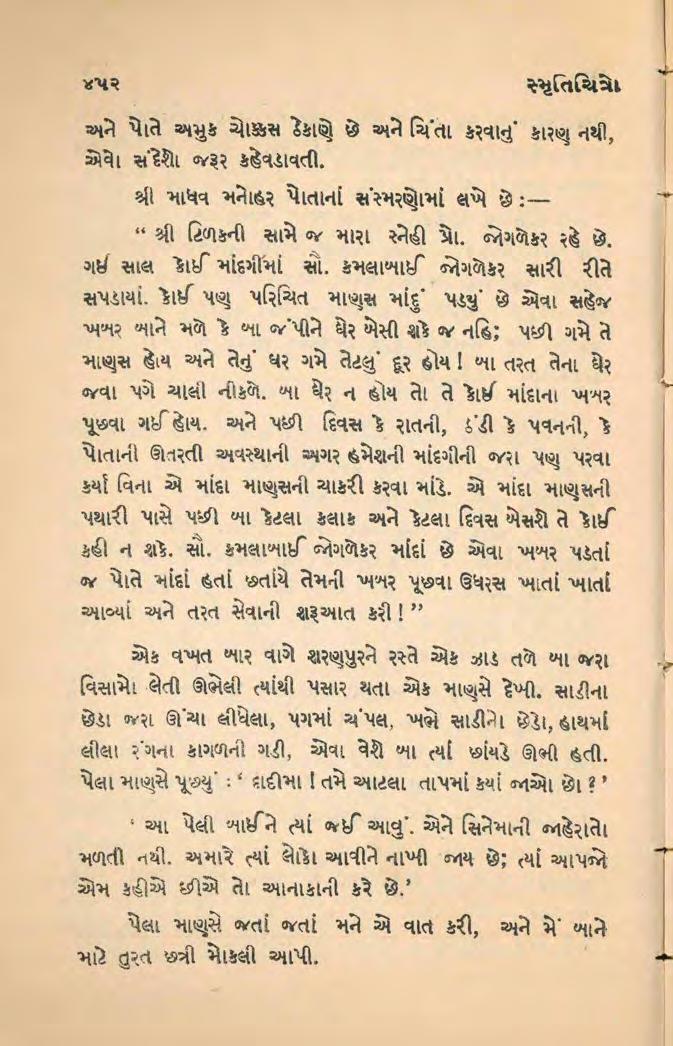 ૪૫૨ સ્મૃતિચિત્રો
અને પોતે અમુક ચોક્કસ ઠેકાણે છે અને ચિંતા કરવાનું કારણ નથી,
એવો સંદેશો જરૂર કહેવડાવતી.
શ્રી માધવ મનોહર પોતાનાં સંસ્મરણોમાં લખે છે :—
“ શ્રી ટિળકની સામે જ મારા સ્નેહી પ્રો. જોગળેકર રહે છે.
ગઈ સાલ કોઈ માંદગીમાં સૌ. કમલાબાઈ જોગળેકર સારી રીતે
સપડાયાં. કોઈ પણ પરિચિત માણસ માંદું પડયું છે એવા સહેજ
ખબર બાને મળે કે બા જંપીને ઘેર બેસી શકે જ નહિ; પછી ગમે તે
માણસ હોય અને તેનું ઘર ગમે તેટલું દૂર હોય ! બા તરત તેના ઘેર
જવા પગે ચાલી નીકળે. બા ઘેર ન હોય તો તે કોઈ માંદાના ખબર
પૂછવા ગઈ હોય. અને પછી દિવસ કે રાતની, ઠંડી કે પવનની, કે
પોતાની ઊતરતી અવસ્થાની અગર હમેશની માંદગીની જરા પણ પરવા
કર્યા વિના એ માંદા માણસની ચાકરી કરવા માંડે. એ માંદા માણસની
પથારી પાસે પછી બા કેટલા કલાક અને કેટલા દિવસ બેસશે તે કોઈ
કહી ન શકે. સૌ. કમલાબાઈ જોગળેકર માંદાં છે એવા ખબર પડતાં
જ પોતે માંદાં હતાં છતાંયે તેમની ખબર પૂછવા ઉધરસ ખાતાં ખાતાં
આવ્યાં અને તરત સેવાની શરૂઆત કરી ! ”
એક વખત બાર વાગે શરણપુરને રસ્તે એક ઝાડ તળે બા જરા
વિસામો લેતી ઊભેલી ત્યાંથી પસાર થતા એક માણસે દેખી. સાડીના
છેડા જરા ઊંચા લીધેલા, પગમાં ચંપલ, ખભે સાડીનો છેડો, હાથમાં
લીલા રંગના કાગળની ગડી, એવા વેશે બા ત્યાં છાંયડે ઊભી હતી.
પેલા માણસે પૂછ્યું : ‘ દાદીમા ! તમે આટલા તાપમાં કયાં જાઓ છો ? ’
‘ આ પેલી બાઈને ત્યાં જઈ આવું. એને સિનેમાની જાહેરાતો
મળતી નથી. અમારે ત્યાં લોકો આવીને નાખી જાય છે; ત્યાં આપજો
એમ કહીએ છીએ તો આનાકાની કરે છે.’
પેલા માણસે જતાં જતાં મને એ વાત કરી, અને મેં બાને
માટે તુરત છત્રી મોકલી આપી.